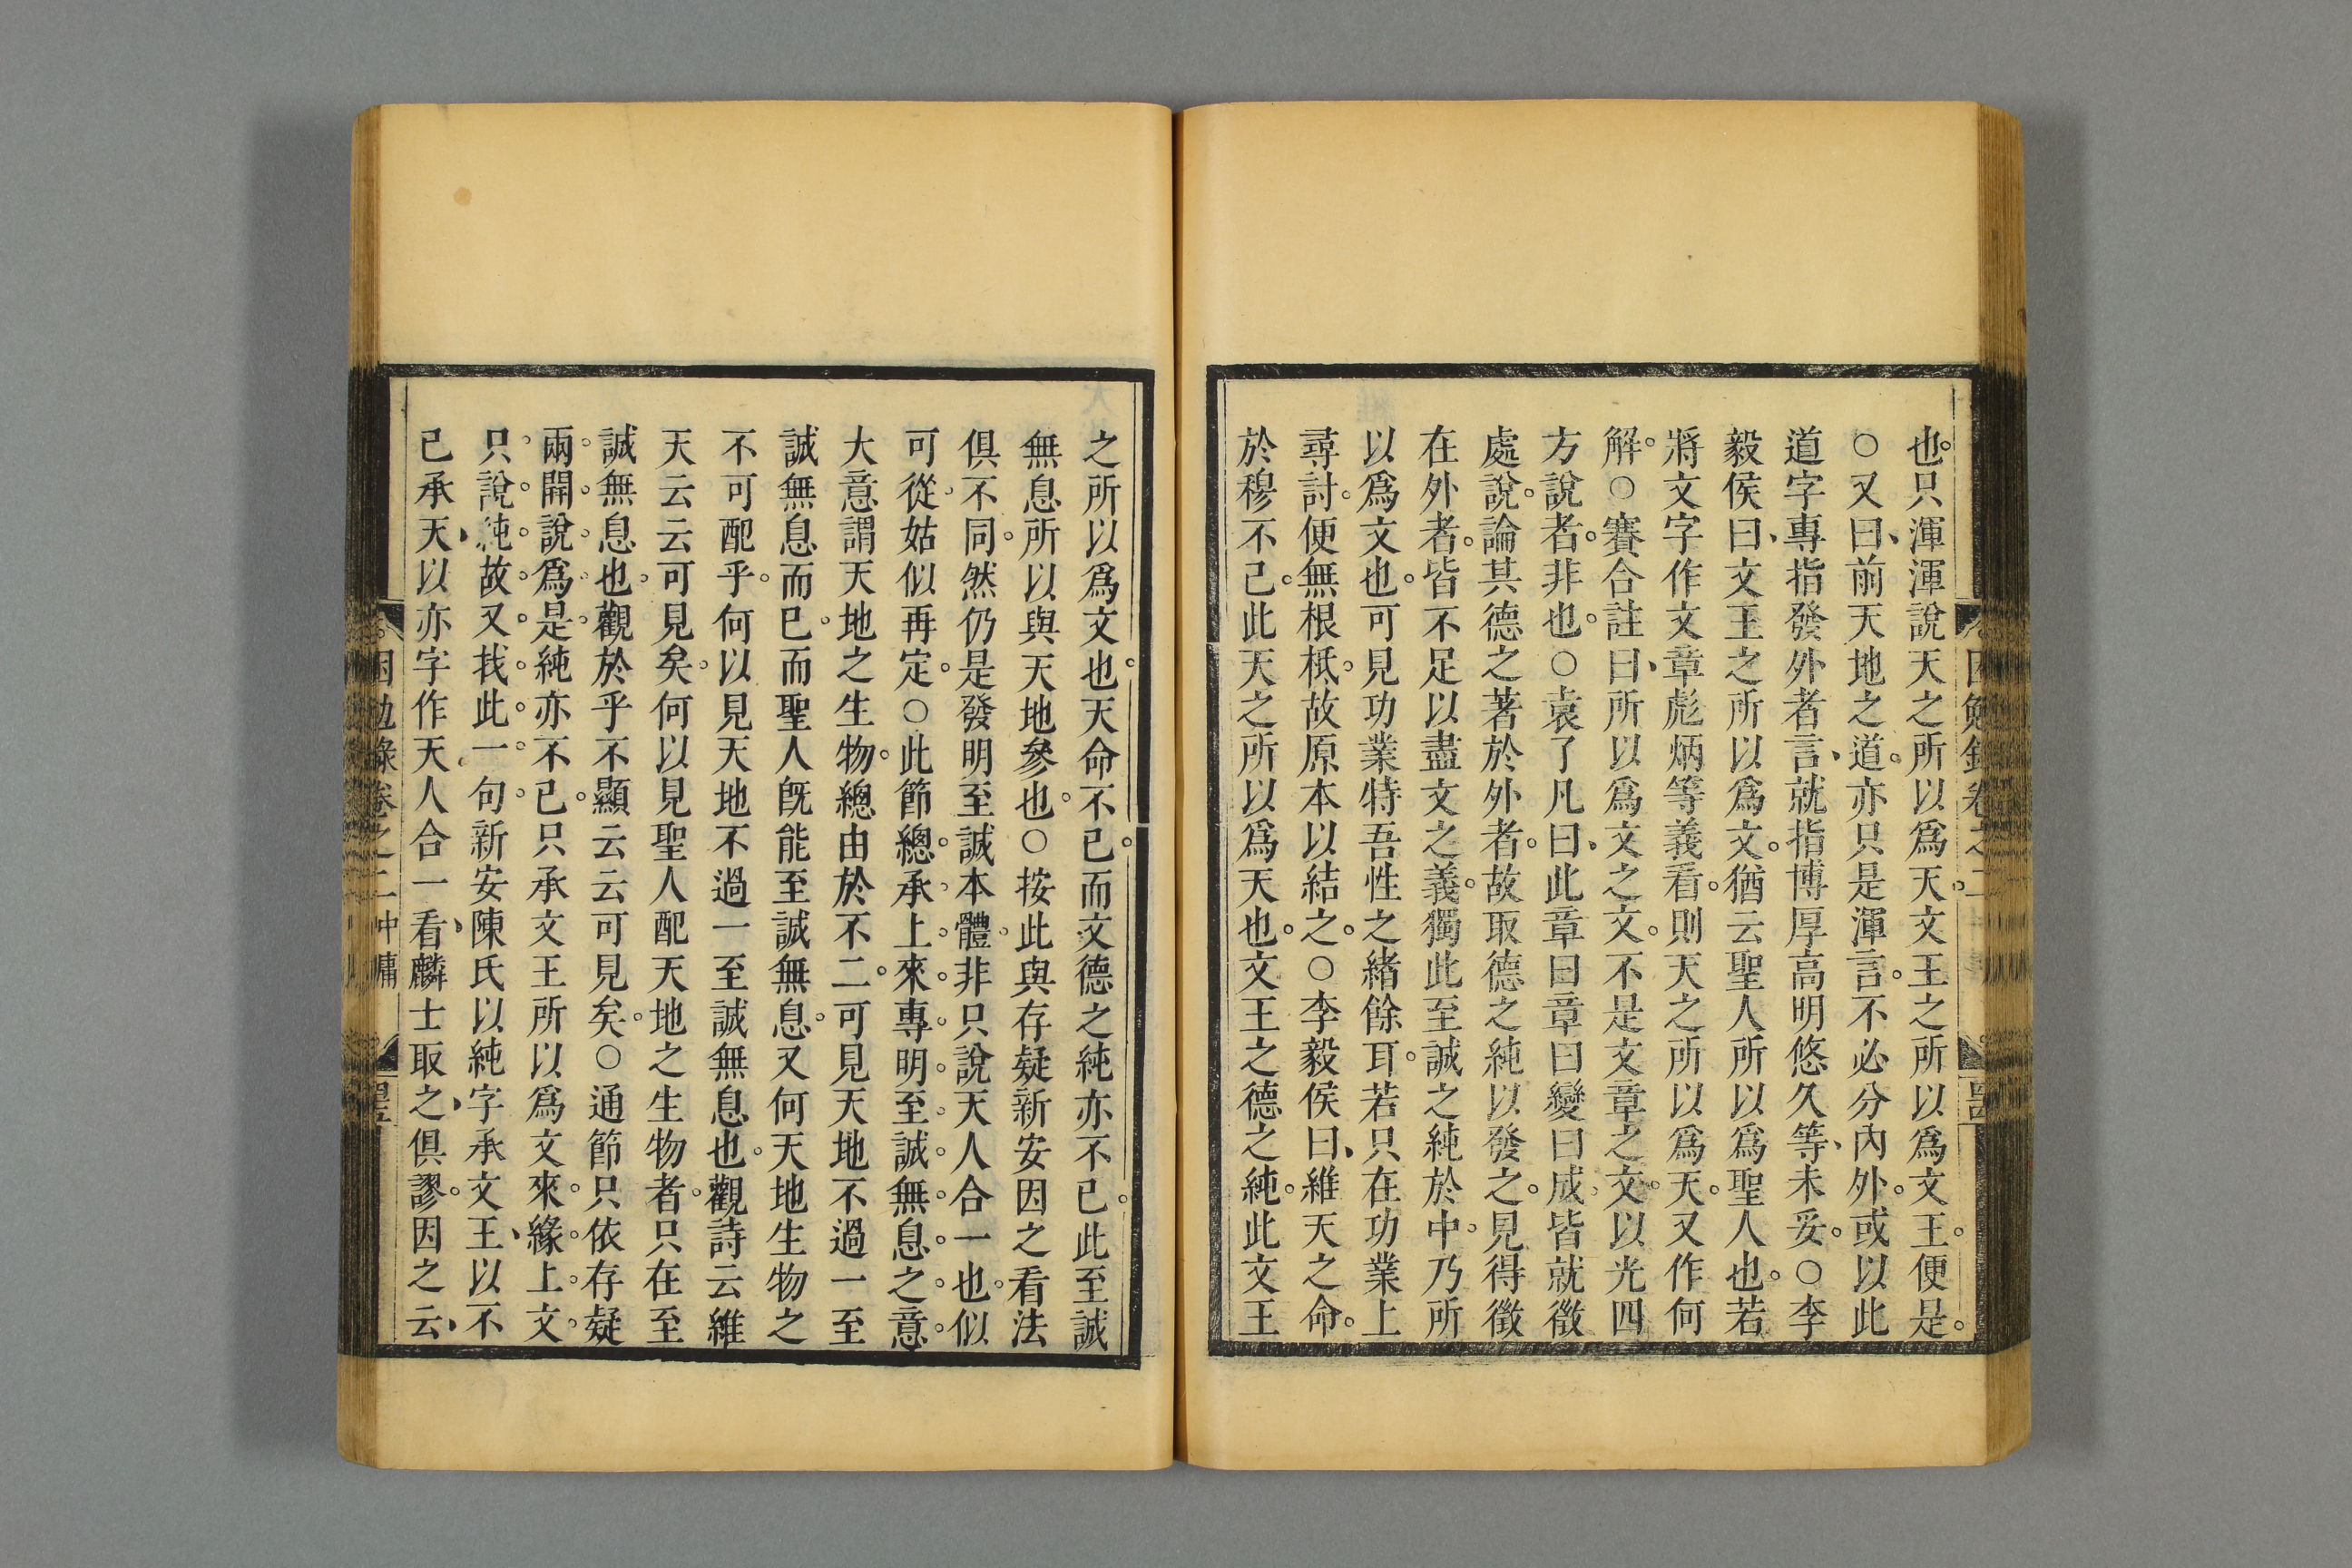 也只渾渾說天之所以爲天文王之所以爲文王便是
○又曰前天地之道亦只是渾言不必分內外或以此
道字專指發外者言就指博厚高明悠久等未妥○李
毅侯曰文王之所以爲文猶云聖人所以爲聖人也若
將文字作文章彪炳等義看則天之所以爲天又作何
解○賽合註曰所以爲文之文不是文章之文以光四
方說者非也○袁了凡曰此章曰章曰變曰成皆就徵
處說論其德之著於外者故取德之純以發之見得徵
在外者皆不足以盡文之義獨此至誠之純於中乃所
以爲文也可見功業特吾性之緒餘耳若只在功業上
尋討便無根柢故原本以結之○李毅侯曰維天之命
於穆不已此天之所以爲天也文王之德之純此文王
之所以爲文也天命不已而文德之純亦不已此至誠
無息所以與天地參也○按此與存疑新安因之看法
俱不同然仍是發明至誠本體非只說天人合一也似
可從姑似再定○此節總承上來專明至誠無息之意
大意謂天地之生物總由於不二可見天地不過一至
誠無息而已而聖人旣能至誠無息又何天地生物之
不可配乎何以見天地不過一至誠無息也觀詩云維
天云云可見矣何以見聖人配天地之生物者只在至
誠無息也觀於乎不顯云云可見矣○通節只依存疑
兩開說爲是純亦不已只承文王所以爲文來緣上文
只說純故又找此一句新安陳氏以純字承文王以不
已承天以亦字作天人合一看麟士取之俱謬因之云
困勉錄卷之二中庸